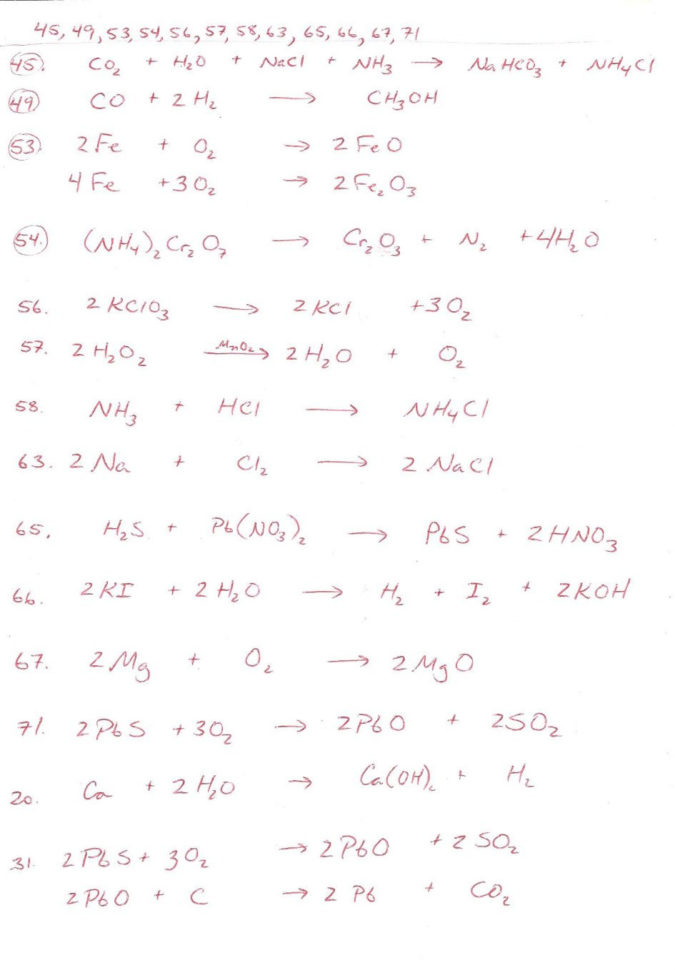 45, 49, 53, 54, 56, 57, 58, 63, 65, 66, 67, 71
45. CO₂ + H₂O + NaCl + NH₃ → NaHCO₃ + NH₄Cl
49 CO + 2H₂ → CH₃OH
53 2Fe + O₂ → 2FeO
4Fe + 3O₂ → 2Fe₂O₃
54. (NH₄)₂Cr₂O₇ → Cr₂O₃ + N₂ + 4H₂O
56. 2KClO₃ → 2KCl + 3O₂
57. 2H₂O₂ MnO₂→ 2H₂O + O₂
58. NH₃ + HCl → NH₄Cl
63. 2Na + Cl₂ → 2NaCl
65. H₂S + Pb(NO₃)₂ → PbS + 2HNO₃
66. 2KI + 2H₂O → H₂ + I₂ + 2KOH
67. 2Mg + O₂ → 2MgO
71. 2PbS + 3O₂ → 2PbO + 2SO₂
20. Ca + 2H₂O → Ca(OH)₂ + H₂
31. 2PbS + 3O₂ → 2PbO + 2SO₂
2PbO + C → 2Pb + CO₂